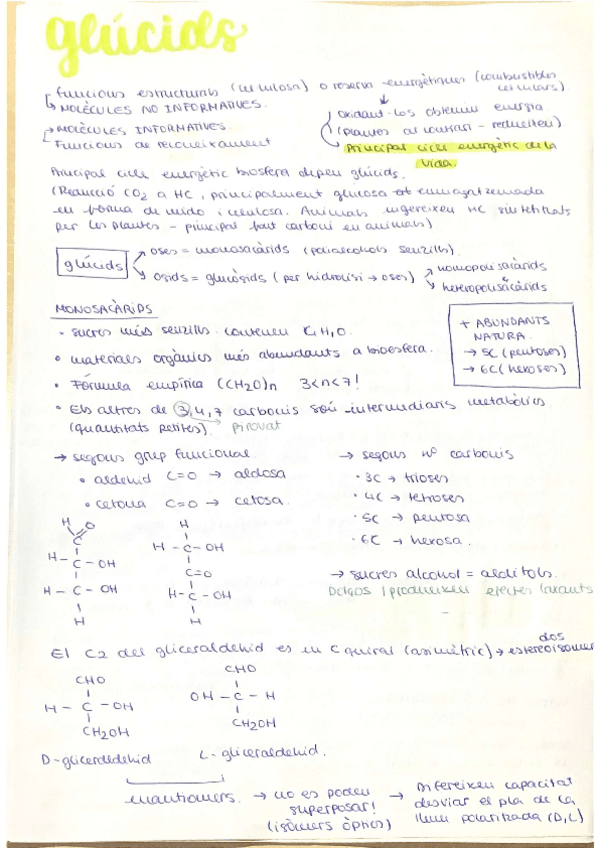 glúcids
funcions estructurals (cel·lulosa) o reserva energètiques (combustibles cel·lulars).
MOLÈCULES NO INFORMATIVES.
oxidant-los obtenim energia
→ MOLÈCULES INFORMATIVES
(plantes al contrari - redueixen)
Funcions de reconeixement
Principal cicle energètic de la vida.
Principal cicle energètic biosfera depèn glúcids.
(Reducció CO2 a HC, principalment glucosa emmagatzemada
en forma de midó i cel·lulosa. Animals ingereixen HC sintetitzats
per les plantes - principal font carboni en animals)
glúcids
oses = monosacàrids (polialcohols senzills).
osids = glucòsids (per hidròlisi → oses)
homopolisacàrids
heteropolisacàrids
MONOSACÀRIDS
+ ABUNDANTS
NATURA.
→ 5C (pentoses)
→ 6C (hexoses)
• sucres més senzills. contenen C, H, O.
• materials orgànics més abundants a biosfera.
• Fórmula empírica (CH2O)n 3<n<7!
• Els altres de 3,4,7 carbonis són intermediaris metabòlics
(quantitats petites). pirovat
→ segons grup funcional
• aldehid C=O → aldosa
• cetona C=O → cetosa.
→ segons nº carbonis
• 3C → trioses
• 4C → tetroses
• 5C → pentosa
• 6C → hexosa.
H O
C
H - C - OH
H - C - OH
H
H
H - C - OH
C=O
H - C - OH
H
→ sucres alcohol = alditols.
Dolços i produeixen efectes laxants
El C2 del gliceraldehid es un C quiral (asimètric) → dos estereoisomer
CHO
H - C - OH
CH2OH
D-gliceraldehid
CHO
OH - C - H
CH2OH
L-gliceraldehid.
enantiomers. → no es poden
superposar!
(isòmers òptics)
→ Difereixen capacitat
desviar el pla de la
llum polaritzada (D,L)